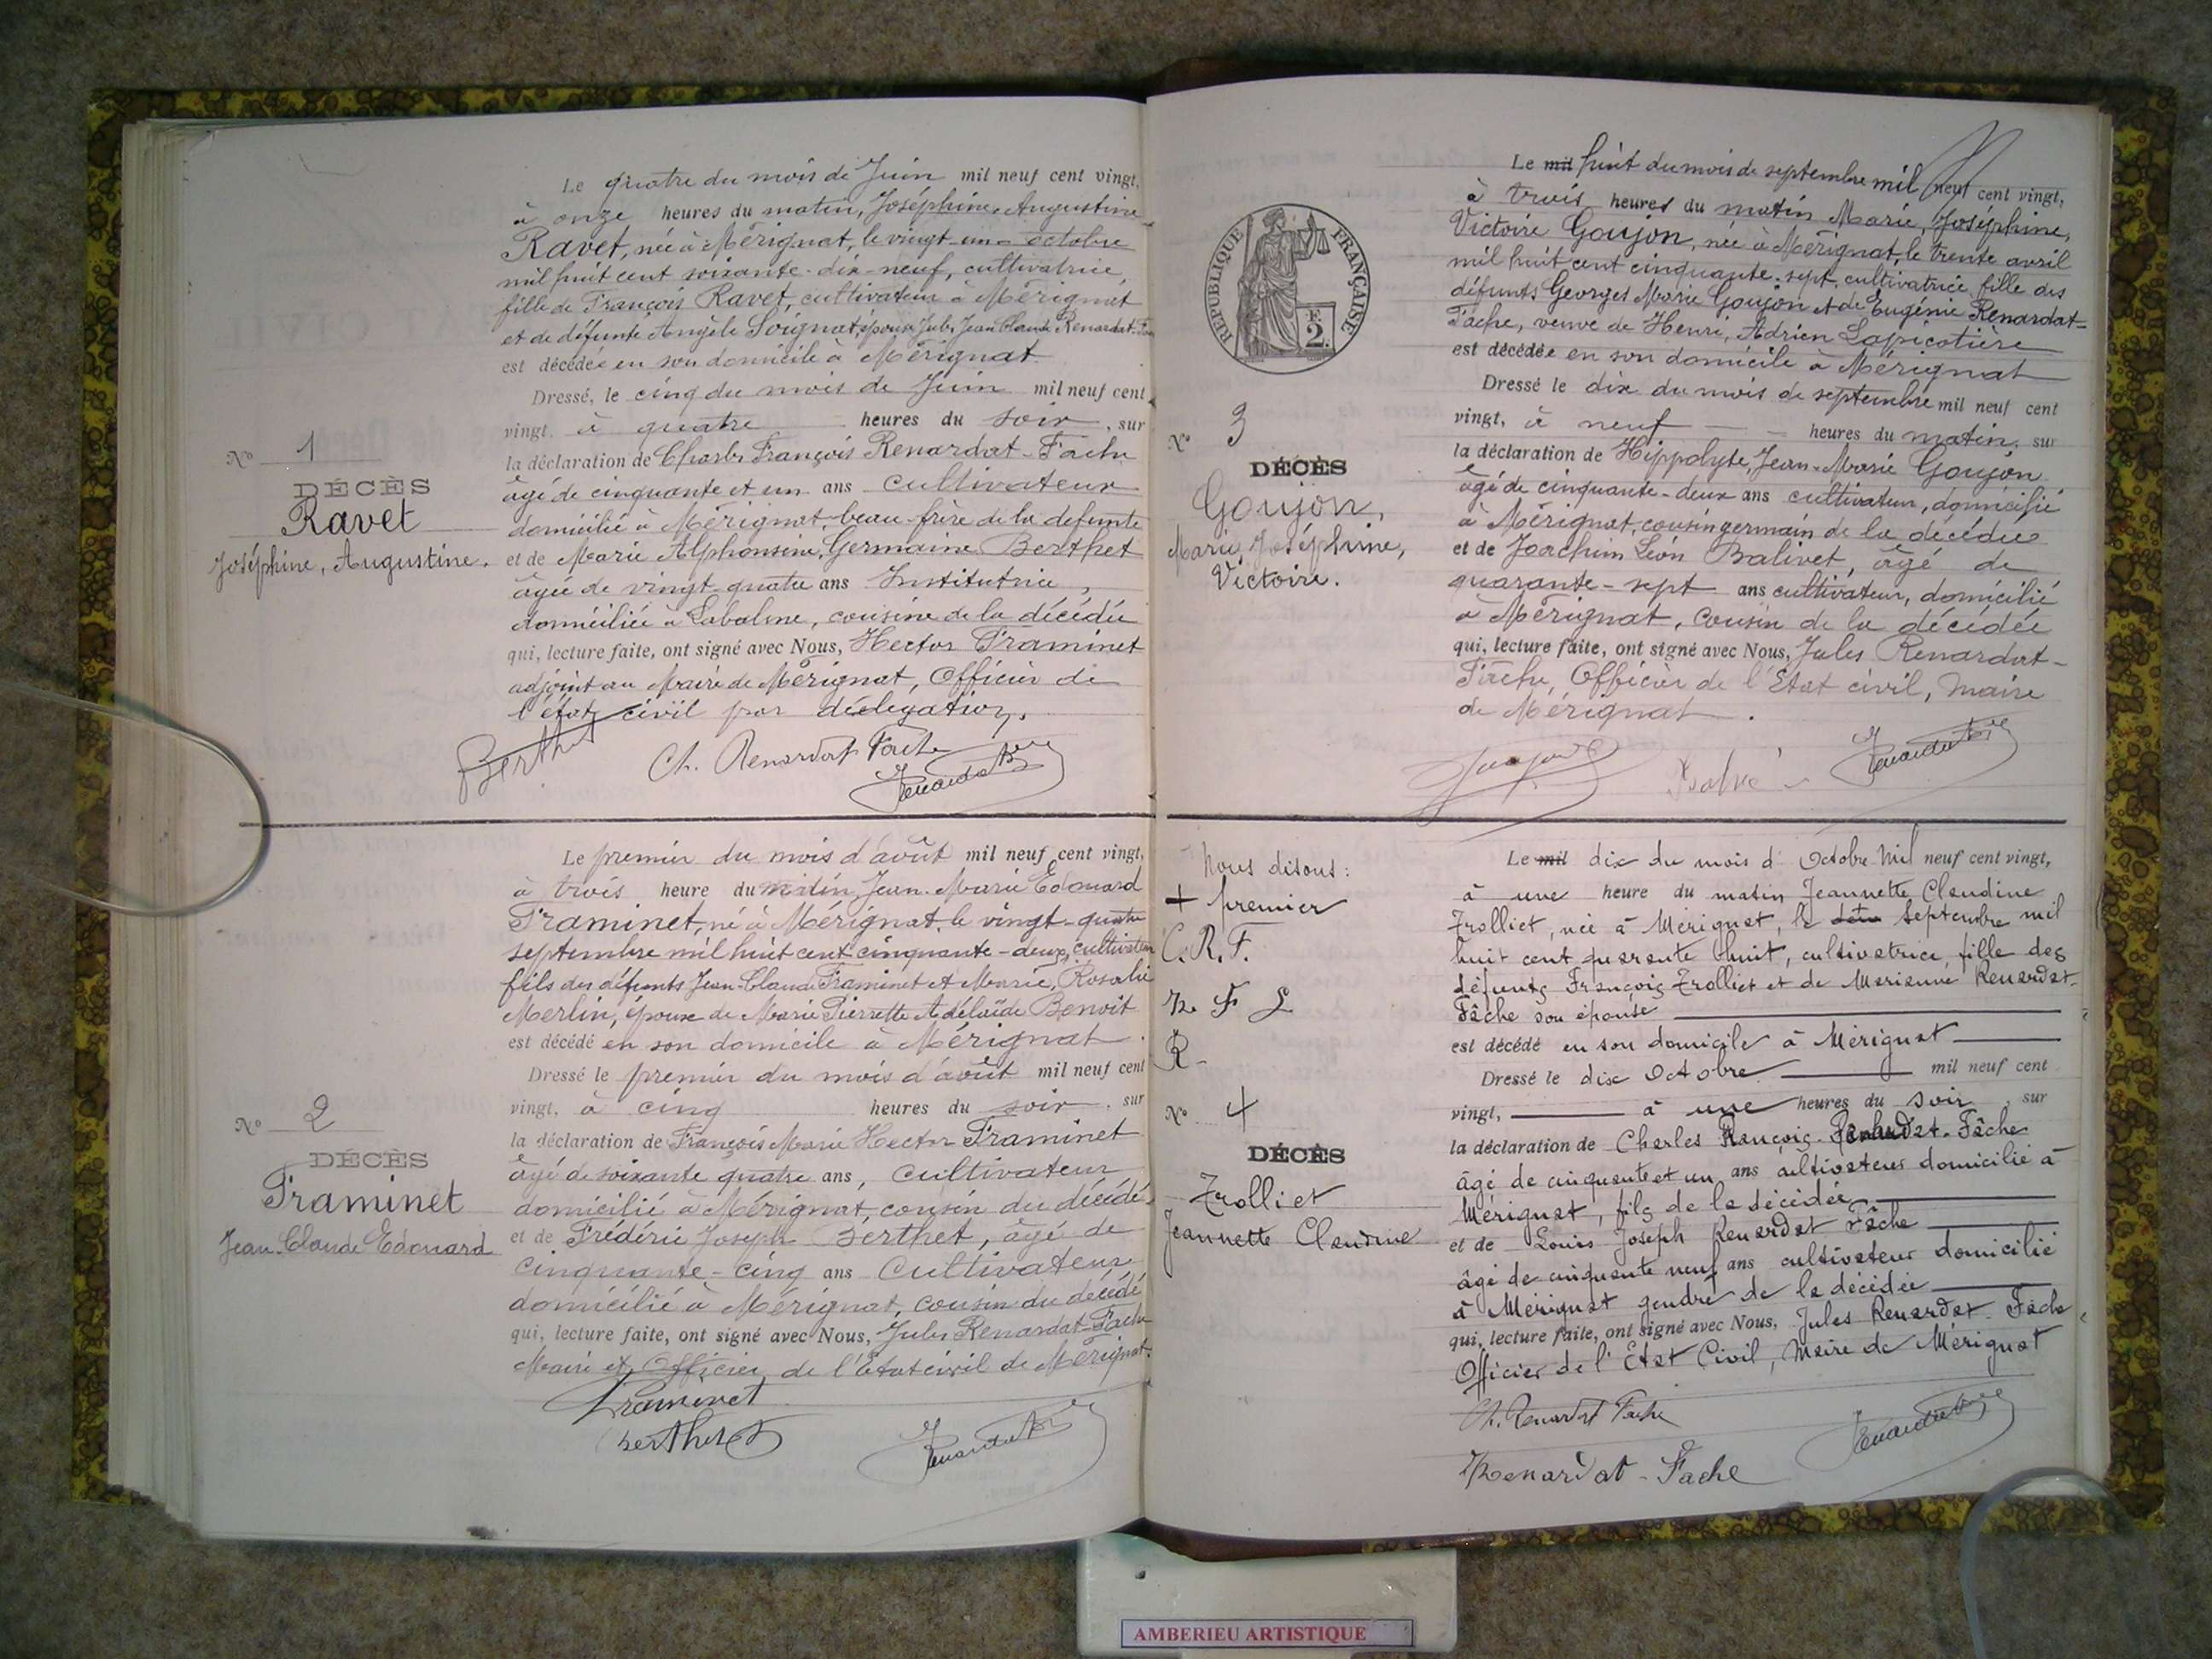 Le quatre du mois de Juin mil neuf cent vingt,
à onze heures du matin, Joséphine, Augustine
Ravet, née à Mérignat, le vingt-un octobre
mil huit cent soixante-dix-neuf, cultivatrice,
fille de François Ravet, cultivateur à Mérignat
et de défunte Angèle Soignat épouse Jules Jean Claude Renardat-Fache
est décédée en son domicile à Mérignat
Dressé, le cinq du mois de Juin mil neuf cent
vingt, à quatre heures du soir, sur
la déclaration de Charles François Renardat-Fache
âgé de cinquante et un ans cultivateur
domicilié à Mérignat, beau-frère de la defunte
et de Marie Alphonsine, Germaine Berthet
âgée de vingt-quatre ans Institutrice,
domiciliée à Labalme, cousine de la décédée
qui, lecture faite, ont signé avec Nous, Hector Traminet
adjoint au Maire de Mérignat, Officier de
l'état civil par délégation.
Berthet Ch. Renardat Fache
N° 1
DÉCÈS
Ravet
Joséphine, Augustine.
Le premier du mois d'août mil neuf cent vingt,
à trois heure du matin, Jean-Marie Edouard
Traminet, né à Mérignat, le vingt-quatre
septembre mil huit cent cinquante-deux, cultivateur
fils des défunts Jean-Claude Traminet et Marie, Rosalie
Merlin, époux de Marie Pierrette Adélaïde Benoit
est décédé en son domicile à Mérignat.
Dressé le premier du mois d'août mil neuf cent
vingt, à cinq heures du soir, sur
la déclaration de François Marie Hector Traminet
âgé de soixante quatre ans, cultivateur
domicilié à Mérignat, cousin du décédé
et de Frédéric Joseph Berthet, âgé de
cinquante-cinq ans Cultivateur
domicilié à Mérignat, cousin du décédé
qui, lecture faite, ont signé avec Nous, Jules Renardat-Fache
Maire et Officier de l'État civil de Mérignat.
Traminet
Berthet
N° 2
DÉCÈS
Traminet
Jean-Claude Edouard
Le mil huit du mois de septembre mil neuf cent vingt,
à trois heures du matin Marie, Joséphine,
Victoire Goujon, née à Mérignat, le trente avril
mil huit cent cinquante-sept, cultivatrice, fille des
défunts Georges Marie Goujon et de Eugénie Renardat-
Fache, veuve de Henri, Adrien Lapicotière
est décédée en son domicile à Mérignat
Dressé le dix du mois de septembre mil neuf cent
vingt, à neuf heures du matin, sur
la déclaration de Hippolyte, Jean-Marie Goujon
âgé de cinquante-deux ans cultivateur, domicilié
à Mérignat, cousin germain de la décédée
et de Joachim Léon Balivet, âgé de
quarante-sept ans cultivateur, domicilié
à Mérignat, cousin de la décédée
qui, lecture faite, ont signé avec Nous, Jules Renardat-
Fache, Officier de l'État civil, Maire
de Mérignat.
RÉPUBLIQUE FRANÇAISE
2
N° 3
DÉCÈS
Goujon,
Marie, Joséphine,
Victoire.
Nous disons:
+ premier
C. R. F.
R. F. L
R -
Le mil dix du mois d'Octobre mil neuf cent vingt,
à une heure du matin Jeannette Claudine
Trolliet, née à Mérignat, le Septembre mil
huit cent quarante huit, cultivatrice, fille des
défunts François Trolliet et de Marianne Renardat-
Fâche son épouse
est décédé en son domicile à Mérignat
Dressé le dix Octobre mil neuf cent
vingt, à une heures du soir, sur
la déclaration de Charles François Renardat-Fâche
âgé de cinquante et un ans cultivateur domicilié à
Mérignat, fils de la décédée
et de Louis Joseph Renardat Fâche
âgé de cinquante neuf ans cultivateur domicilié
à Mérignat gendre de la décédée
qui, lecture faite, ont signé avec Nous, Jules Renardat-Fâche
Officier de l'État Civil, Maire de Mérignat
Ch. Renardat Fache
Renardat-Fache
N° 4
DÉCÈS
Trolliet
Jeannette Claudine
AMBERIEU ARTISTIQUE